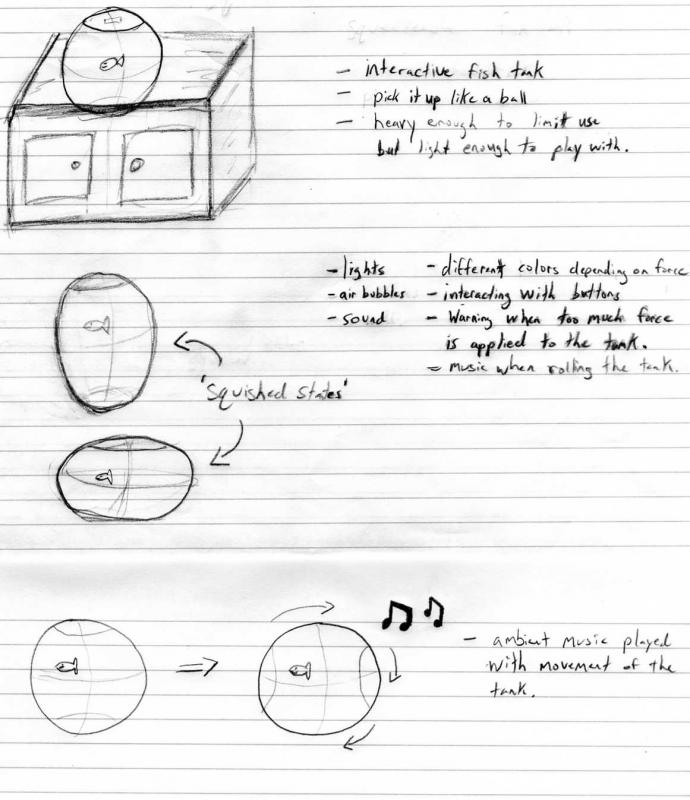 - interactive fish tank
- pick it up like a ball
- heavy enough to limit use
but light enough to play with.
- lights
- air bubbles
- sound
- different colors depending on force
- interacting with buttons
- Warning when too much force
is applied to the tank.
- music when rolling the tank.
'Squished States'
- ambient music played
with movement of the
tank.